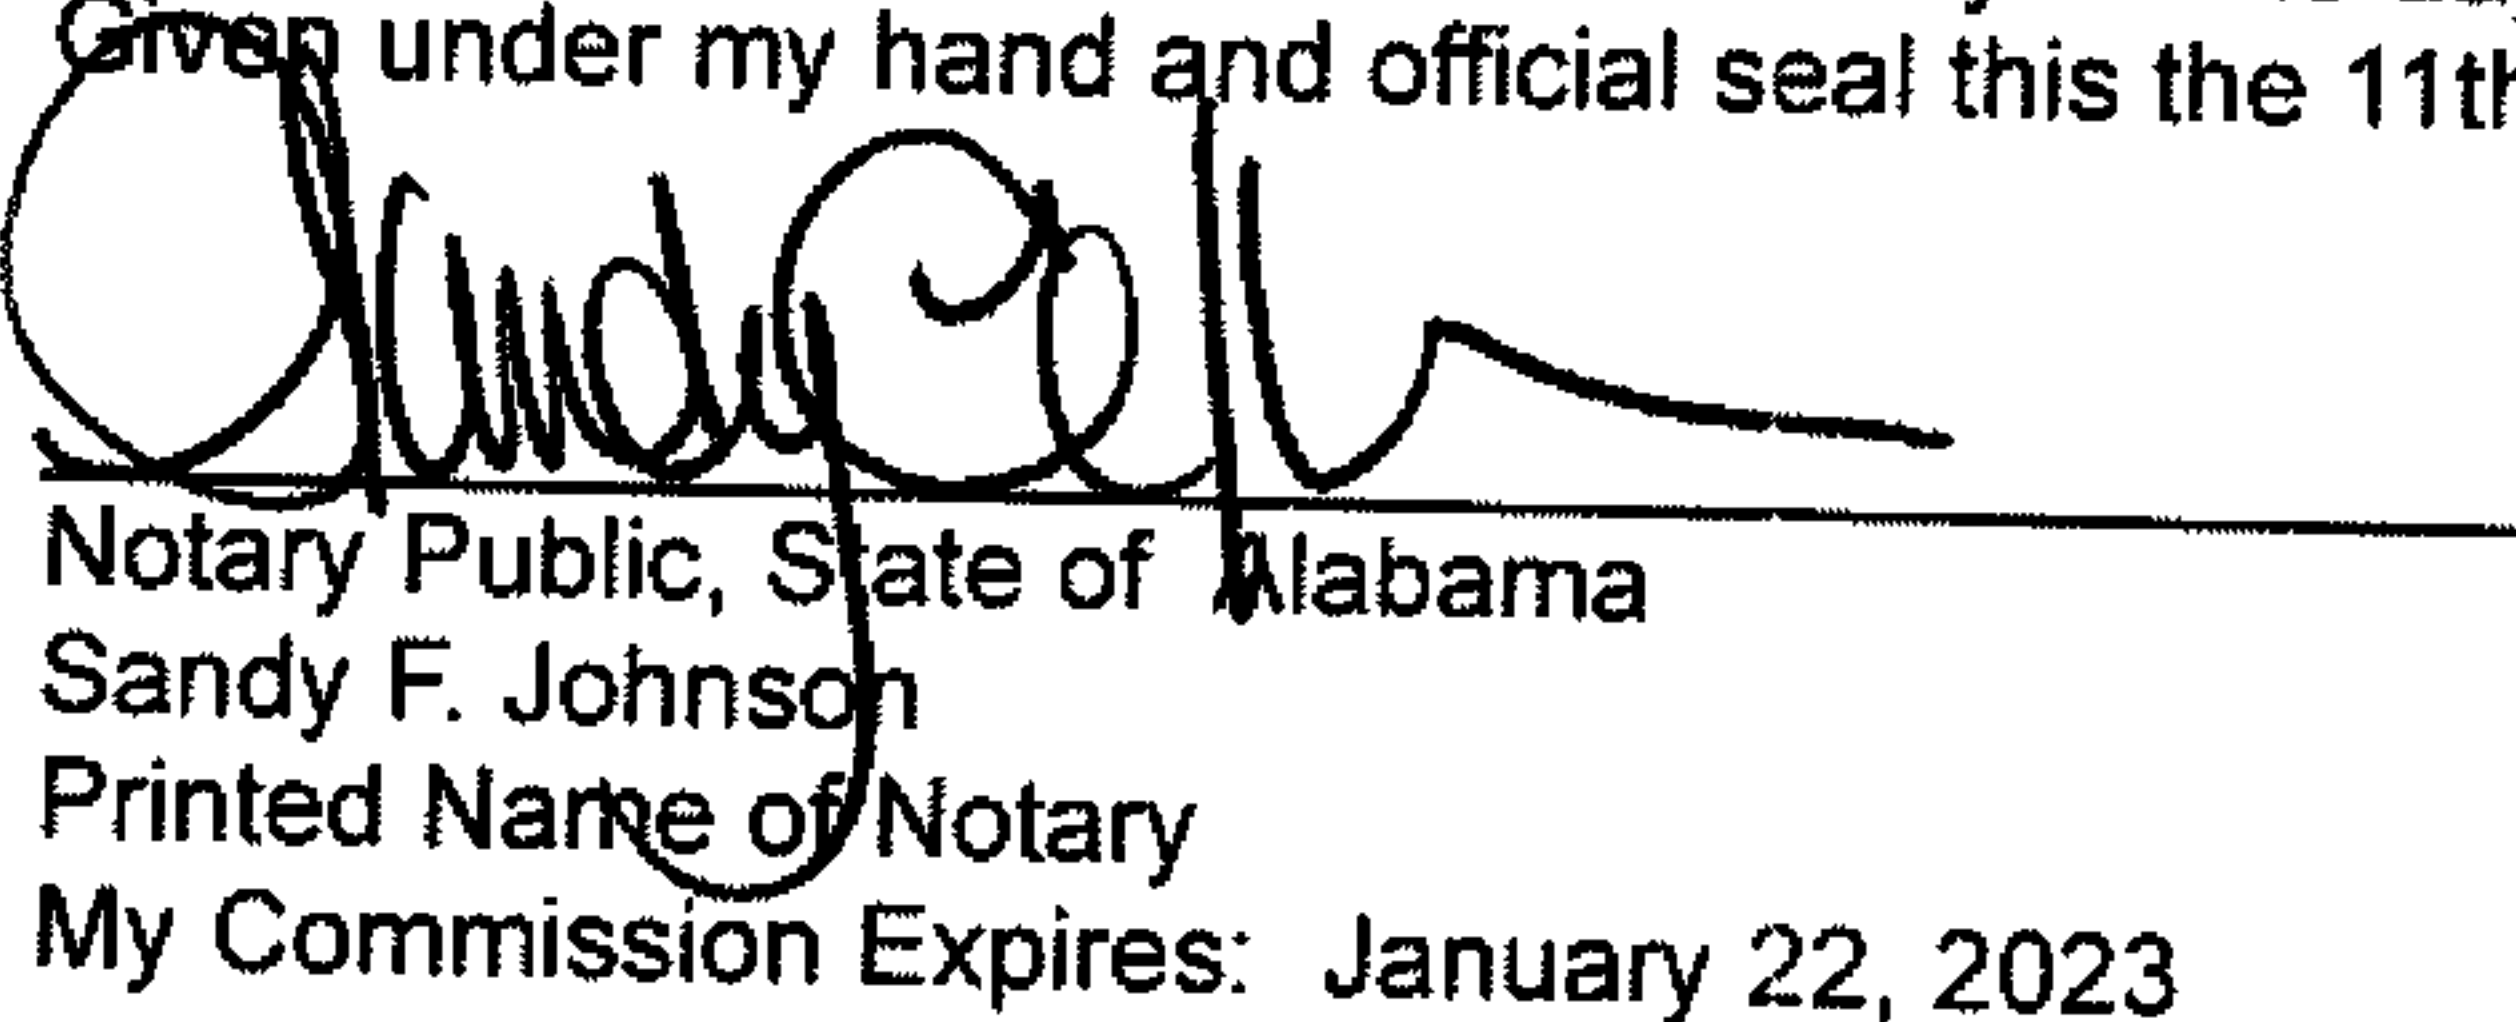 Given under my hand and official seal this the 11th
Notary Public, State of Alabama
Sandy F. Johnson
Printed Name of Notary
My Commission Expires: January 22, 2023